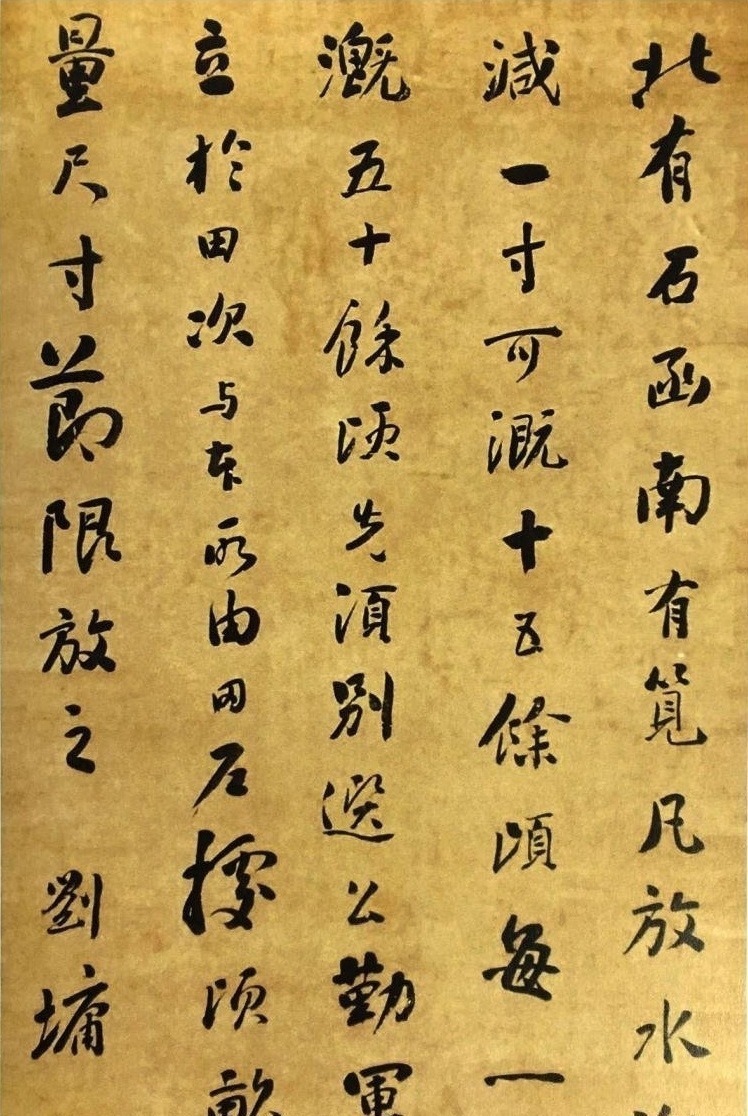 北有石函南有筧凡放水
減一寸可溉十五餘頃每一
溉五十餘頃先須別選公勤軍
立於田次与本所由田户據頃畝
量尺寸節限放之 劉墉